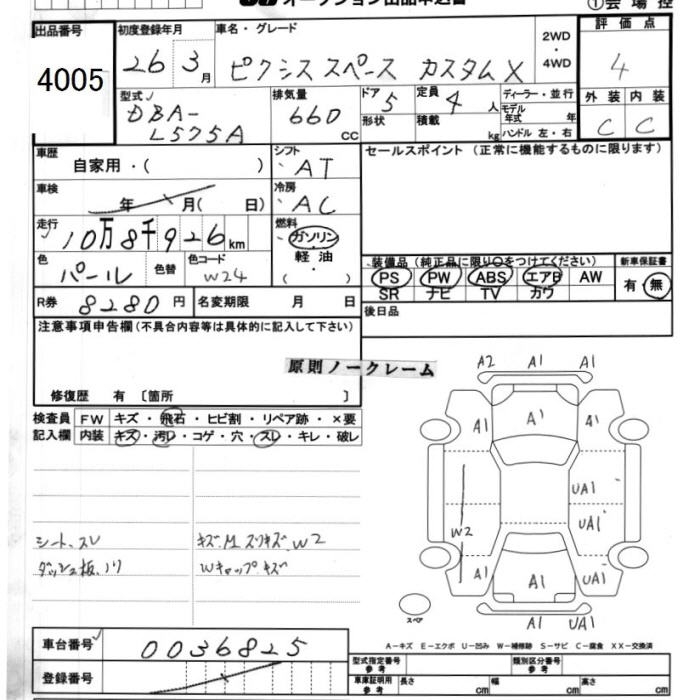 オークション出品申込書
①会場控
出品番号
4005
初度登録年月
26 3月
車名・グレード
ピクシス スペース カスタムX
2WD
・
4WD
評価点
4
外装 内装
C C
型式
DBA-
L575A
排気量
660
cc
ドア 5
形状
定員 4 人
積載 kg
ディーラー・並行
モデル年式 年
ハンドル 左・右
車歴
自家用・( )
シフト
AT
セールスポイント (正常に機能するものに限ります)
車検
年 月( 日)
冷房
AC
走行
10万8千926km
燃料
ガソリン
軽油
( ・ )
色
パール
色替
色コード
W24
装備品 (純正品に限り○をつけてください)
PS PW ABS エアB AW
SR ナビ TV カワ
新車保証書
有・無
R券 8280円
名変期限 月 日
後日品
注意事項申告欄(不具合内容等は具体的に記入して下さい)
原則ノークレーム
修復歴 有 〔箇所 〕
検査員
記入欄
FW キズ・飛石・ヒビ割・リペア跡・×要
内装 キズ・汚レ・コゲ・穴・スレ・キレ・破レ
シート、スレ
ダッシュ板、ノリ
キズ.M スリキズ.W2
Wキャップ キズ
A2 A1 A1
A1 A1 A1
UA1
UA1
W2
A1 A1 UA1
スペア
A1 UA1
A-キズ E-エクボ U-凹み W-補修跡 S-サビ C-腐食 XX-交換済
車台番号
0036825
登録番号
型式指定番号
参考
類別区分番号
参考
車庫証明用
参考
長さ cm 幅 cm 高さ cm